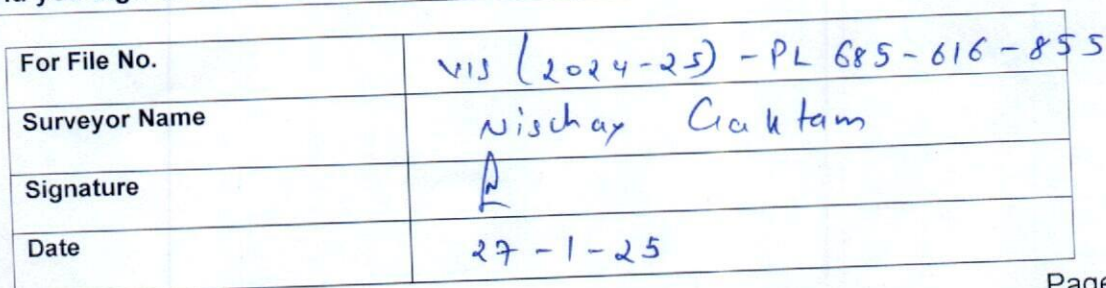 For File No. VIS (2024-25) - PL 685-616-855
Surveyor Name Nischay Gautam
Signature
Date 27-1-25
Page